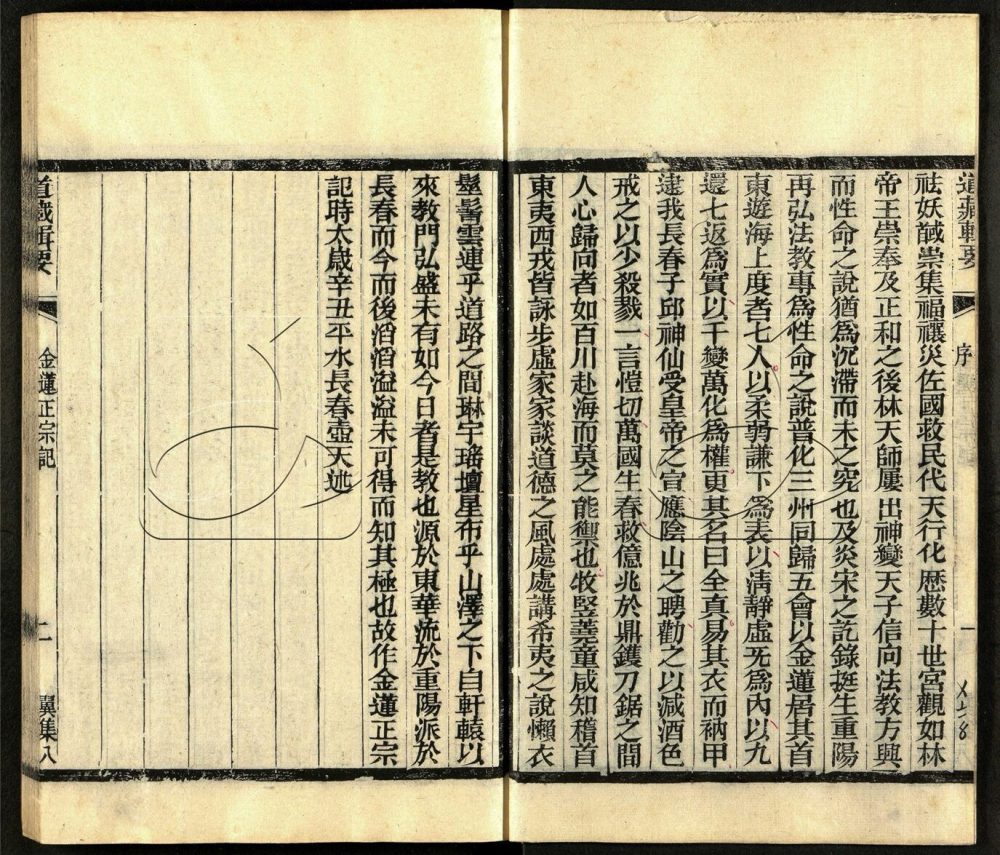 道藏輯要
序
祛妖馘祟集福禳災佐國救民代天行化歷數十世宮觀如林
帝王崇奉及正和之後林天師屢出神變天子信向法教方興
而性命之說猶爲沉滯而未之究也及炎宋之訖錄挺生重陽
再弘法教專爲性命之說普化三州同歸五會以金蓮居其首
東遊海上度者七人以柔弱謙下爲表以清靜虛无爲內以九
還七返爲實以千變萬化爲權更其名曰全真易其衣而衲甲
逮我長春子邱神仙受皇帝之宣應陰山之聘勸之以減酒色
戒之以少殺戮一言愷切萬國生春救億兆於鼎鑊刀鋸之間
人心歸向者如百川赴海而莫之能禦也牧豎蕘童咸知稽首
東夷西戎皆詠步虛家家談道德之風處處講希夷之說懶衣
髽髻雲連乎道路之間琳宇瑤壇星布乎山澤之下自軒轅以
來教門弘盛未有如今日者是教也源於東華流於重陽派於
長春而今而後滔滔溢溢未可得而知其極也故作金蓮正宗
記時太歲辛丑平水長春壺天述
道藏輯要
金蓮正宗記
二
翼集八